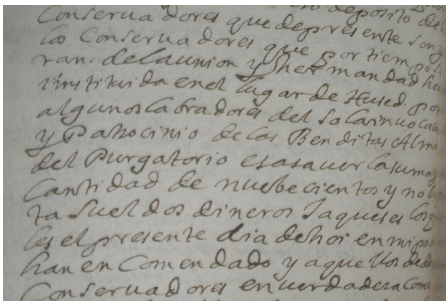 deposito de
Conservadores que de presente son y
los Conservadores que por tiempo se
ran. de la union y hermandad he
i instituida en el lugar de Used. por
algunos labradores del so la
y Patrocinio de las Benditas Alma
del Purgatorio es asaver la suma y
Cantidad de nuebecientos y nobe
ta sueldos dineros Jaqueses los qua
les el presente dia de hoi en mi po
han en Comendado y aquellos de
Conservadores en verdadera Coma